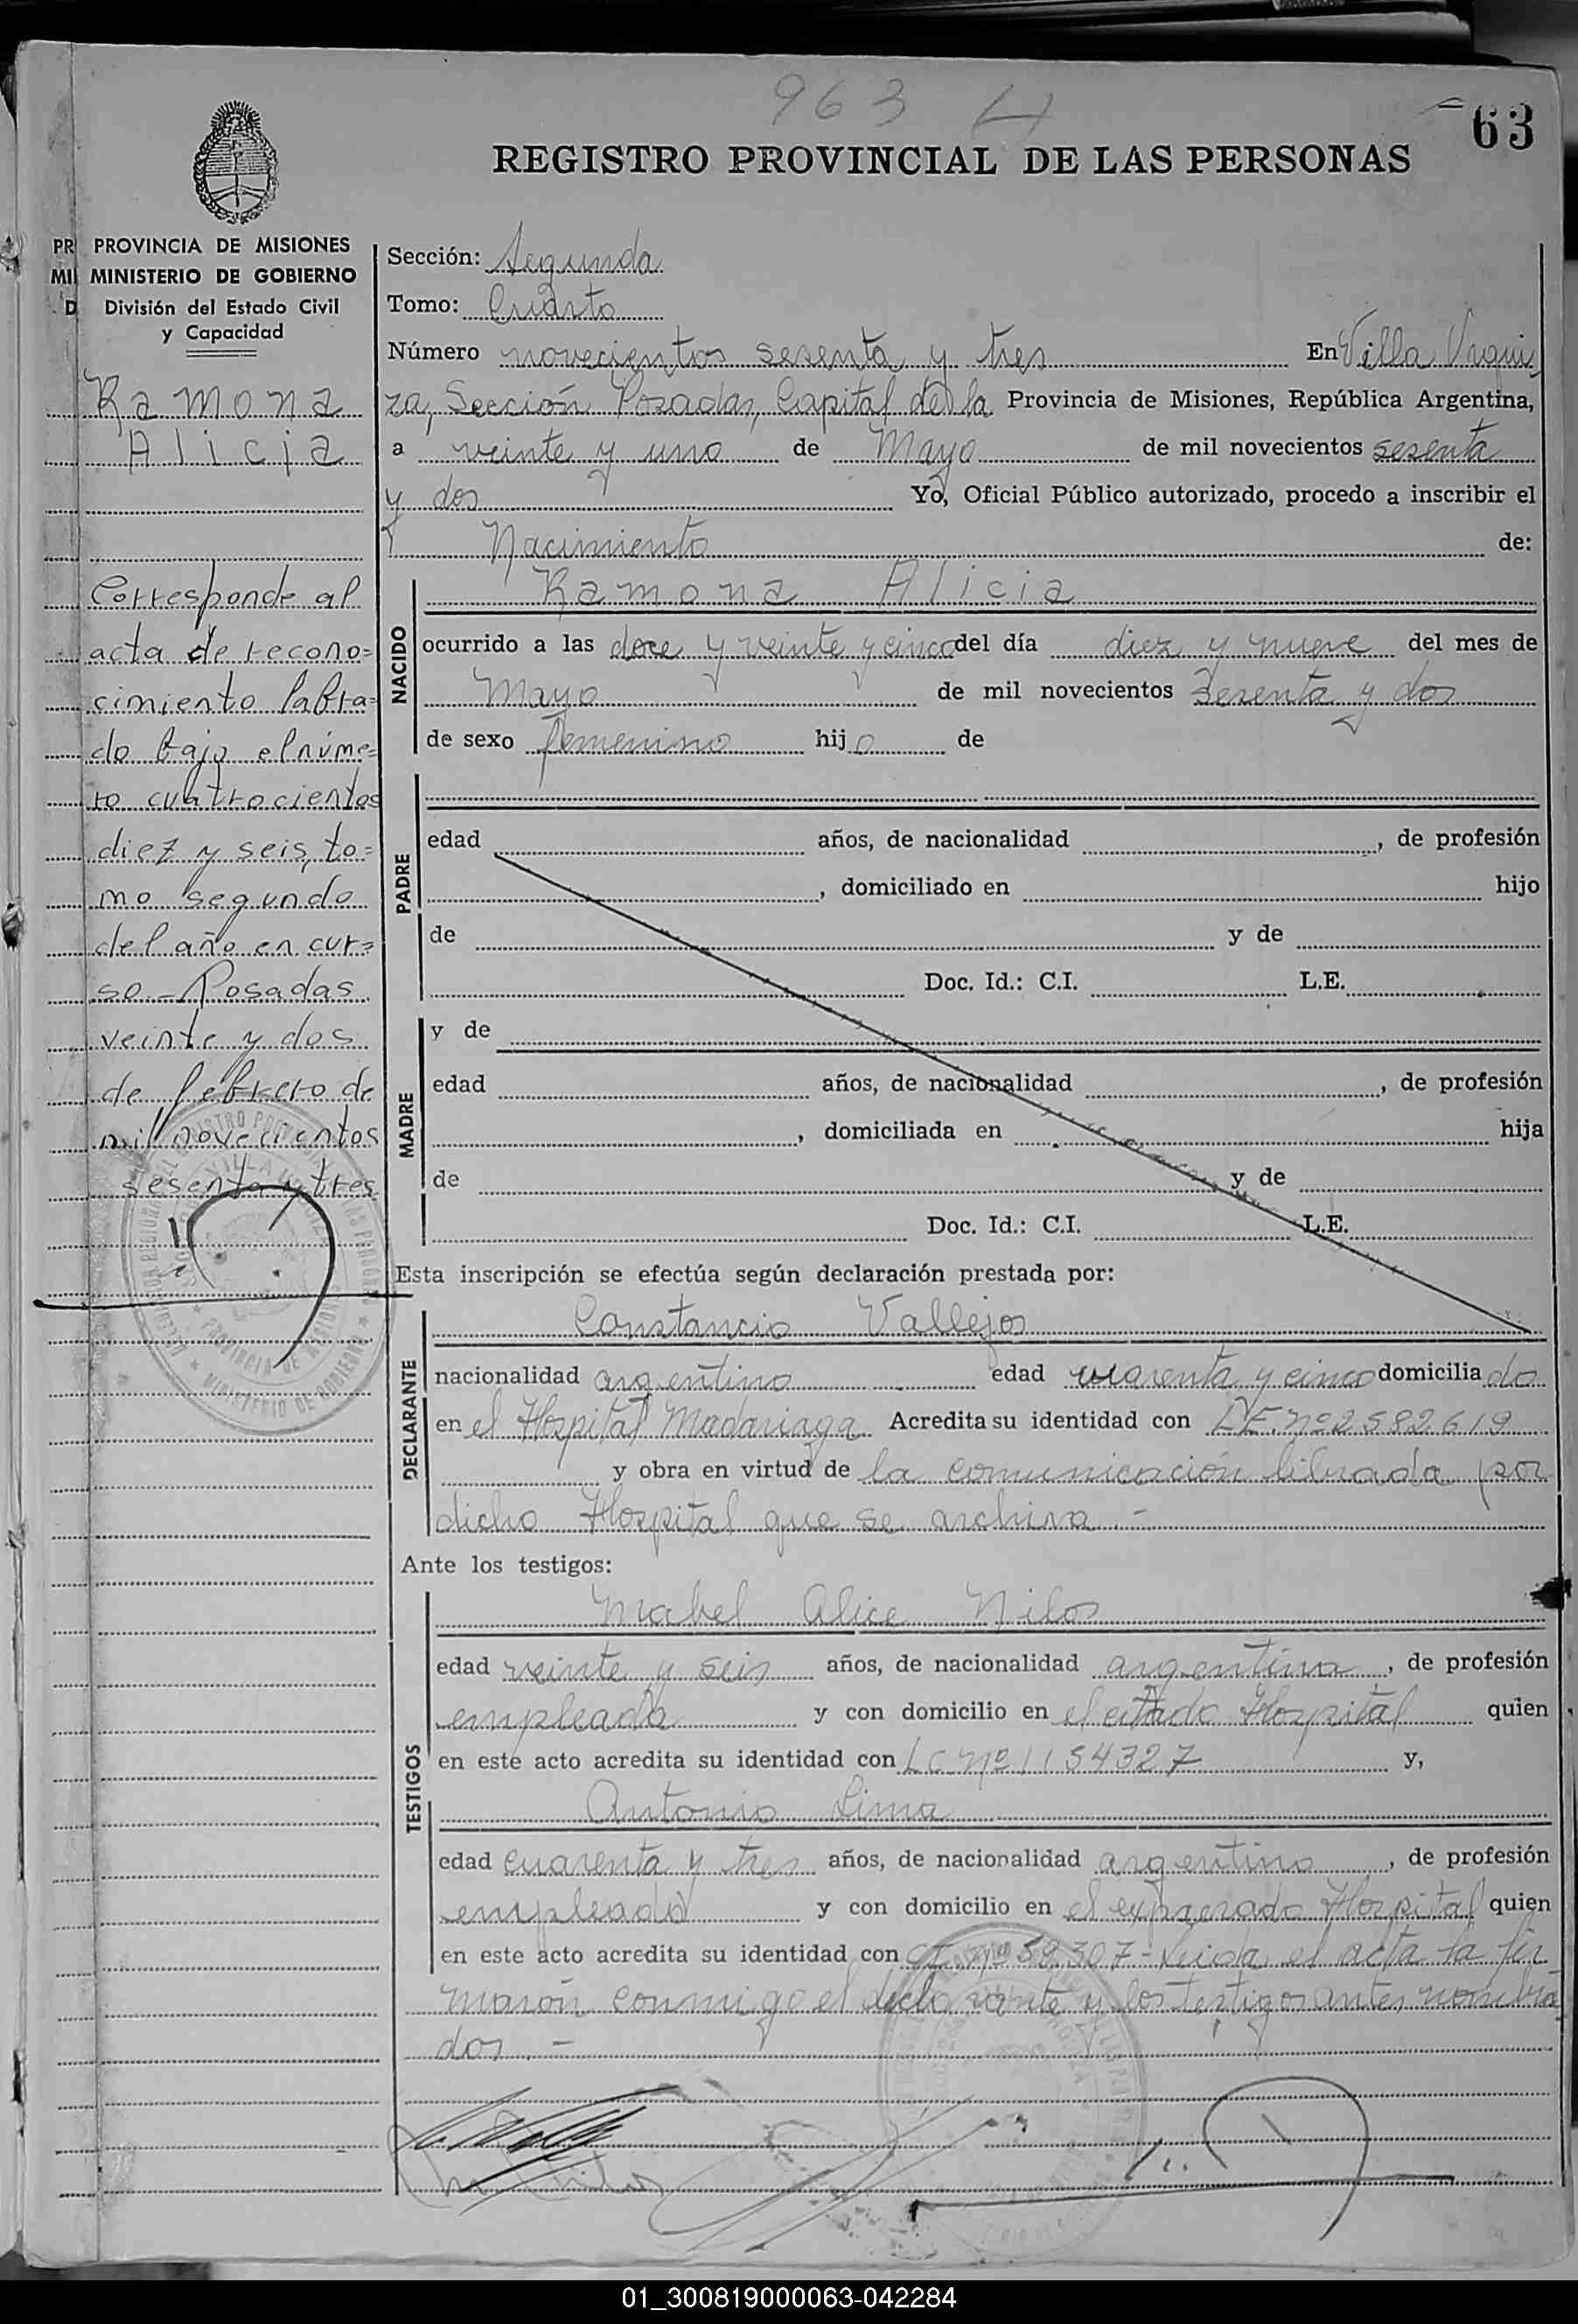 963
63
REGISTRO PROVINCIAL DE LAS PERSONAS
PR PROVINCIA DE MISIONES
MI MINISTERIO DE GOBIERNO
D División del Estado Civil
y Capacidad
Ramona
Alicia
Corresponde al
acta de recono=
cimiento labra=
do bajo el núme=
ro cuatrocientos
diez y seis, to=
mo segundo
del año en cur=
so.- Posadas
veinte y dos
de febrero de
mil novecientos
sesenta y tres
Sección: Segunda
Tomo: Cuarto
Número novecientos sesenta y tres En Villa Urqui
za, Sección Posadas, Capital de la Provincia de Misiones, República Argentina,
a veinte y uno de Mayo de mil novecientos sesenta
y dos Yo, Oficial Público autorizado, procedo a inscribir el
Nacimiento de:
NACIDO
Ramona Alicia
ocurrido a las doce y veinte y cinco del día diez y nueve del mes de
Mayo de mil novecientos sesenta y dos
de sexo femenino hijo de
PADRE
edad años, de nacionalidad , de profesión
, domiciliado en hijo
de y de
Doc. Id.: C.I. L.E.
MADRE
y de
edad años, de nacionalidad , de profesión
, domiciliada en hija
de y de
Doc. Id.: C.I. L.E.
Esta inscripción se efectúa según declaración prestada por:
DECLARANTE
Constancio Vallejos
nacionalidad argentino edad cuarenta y cinco domiciliado
en el Hospital Madariaga Acredita su identidad con LE. Nº 2582619
y obra en virtud de la comunicación librada por
dicho Hospital que se archiva.-
Ante los testigos:
TESTIGOS
Mabel Alice Nilos
edad veinte y seis años, de nacionalidad argentina, de profesión
empleada y con domicilio en el citado Hospital quien
en este acto acredita su identidad con LC Nº 1154327 y,
Antonio Lima
edad cuarenta y tres años, de nacionalidad argentino, de profesión
empleado y con domicilio en el expresado Hospital quien
en este acto acredita su identidad con CI. Nº 59.307- Leida el acta la fir
maron conmigo el declarante y los testigos antes nombra
dos.-
01_300819000063-042284